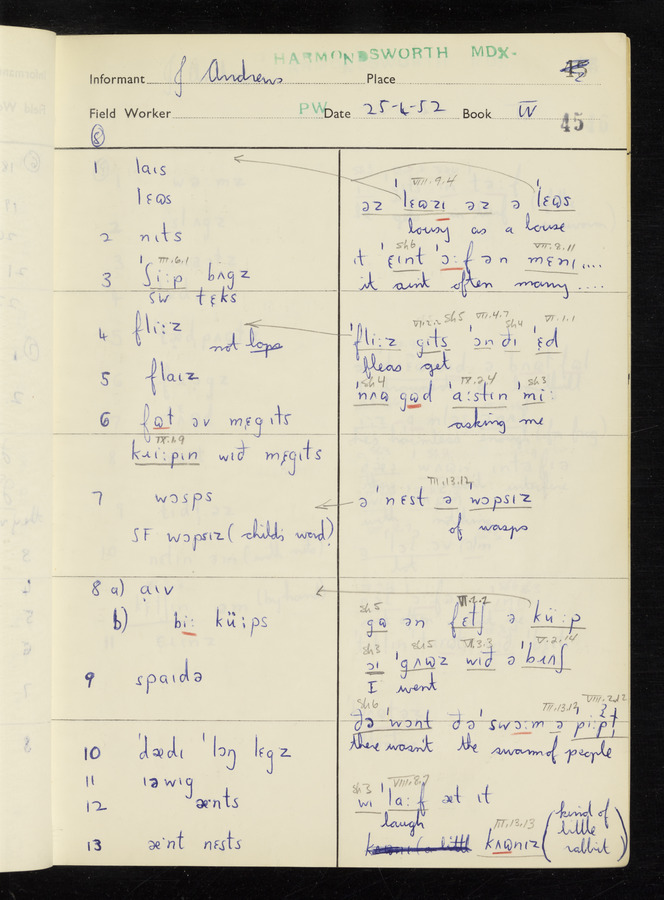 HARMONDSWORTH MDX.
Informant J Andrews Place
Field Worker PW Date 25-4-52 Book IV
45
⑧
1 laɪs
lɛɷs
2 nɪts
3 ʃi:p bʌgz
SW tɛks
III.6.1
4 fli:z
not lops
5 flaɪz
6 fɷt əv mɛgɪts
IX.1.9
kɹi:pɪn wɪð mɛgɪts
7 wɔsps
SF wɔpsɪz (child's word)
8 a) aɪv
b) bi: kü:ps
9 spaɪdə
10 ˈdædɪ ˈlɔŋ lɛgz
11 ɪəwɪg
12 ænts
13 ænt nɛsts
VIII.9.4
əz ˈlɛɷzɪ əz ə ˈlɛɷs
lousy as a louse
Sh6 VII.2.11
ɪt ˈɛɪnt ˈɔ:fən mɛnɪ ....
it ain't often many ....
VI.2.2 Sh5 VII.4.7 Sh4 VI.1.1
ˈfli:z gɪts ˈɔn ðɪ ˈɛd
fleas get
Sh4 IX.2.4 Sh3
ˈnʌɷ gɷd ˈa:stɪn ˈmi:
asking me
III.13.12
ə ˈnɛst ə wɔpsɪz
of wasps
Sh5 VI.2.2
gɷ ən fɛtʃ ə kü:p
Sh3 Sh5 VI.3.3 V.2.14
ɔɪ ˈgʌɷz wɪð ə ˈbɹʌʃ
I went
Sh6 III.13.12 VIII.2.12
ðə ˈwɔnt ðə ˈswɔ:m ə pi:pɫ
there wasn't the swarm of people
Sh3 VIII.8.7
wɪ ˈla:f æt ɪt
laugh
III.13.13
kʌɷnɪz (kind of
little
rabbit)